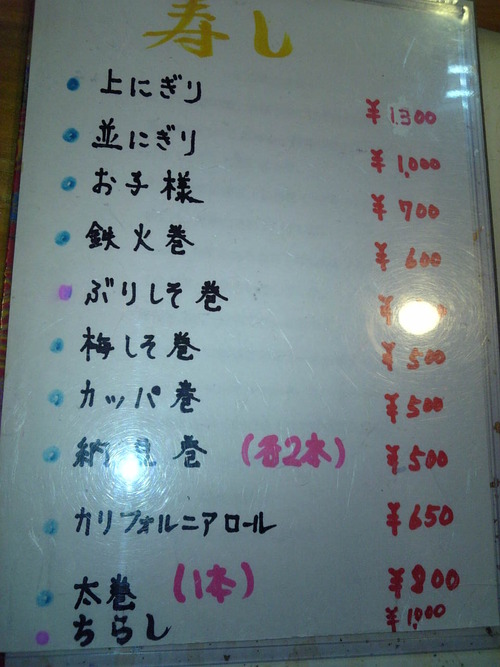 寿し
上にぎり ¥1,300
並にぎり ¥1,000
お子様 ¥700
鉄火巻 ¥600
ぶりしそ巻 ¥
梅しそ巻 ¥500
カッパ巻 ¥500
納 巻 (各2本) ¥500
カリフォルニアロール ¥650
太巻 (1本) ¥800
ちらし ¥1,000